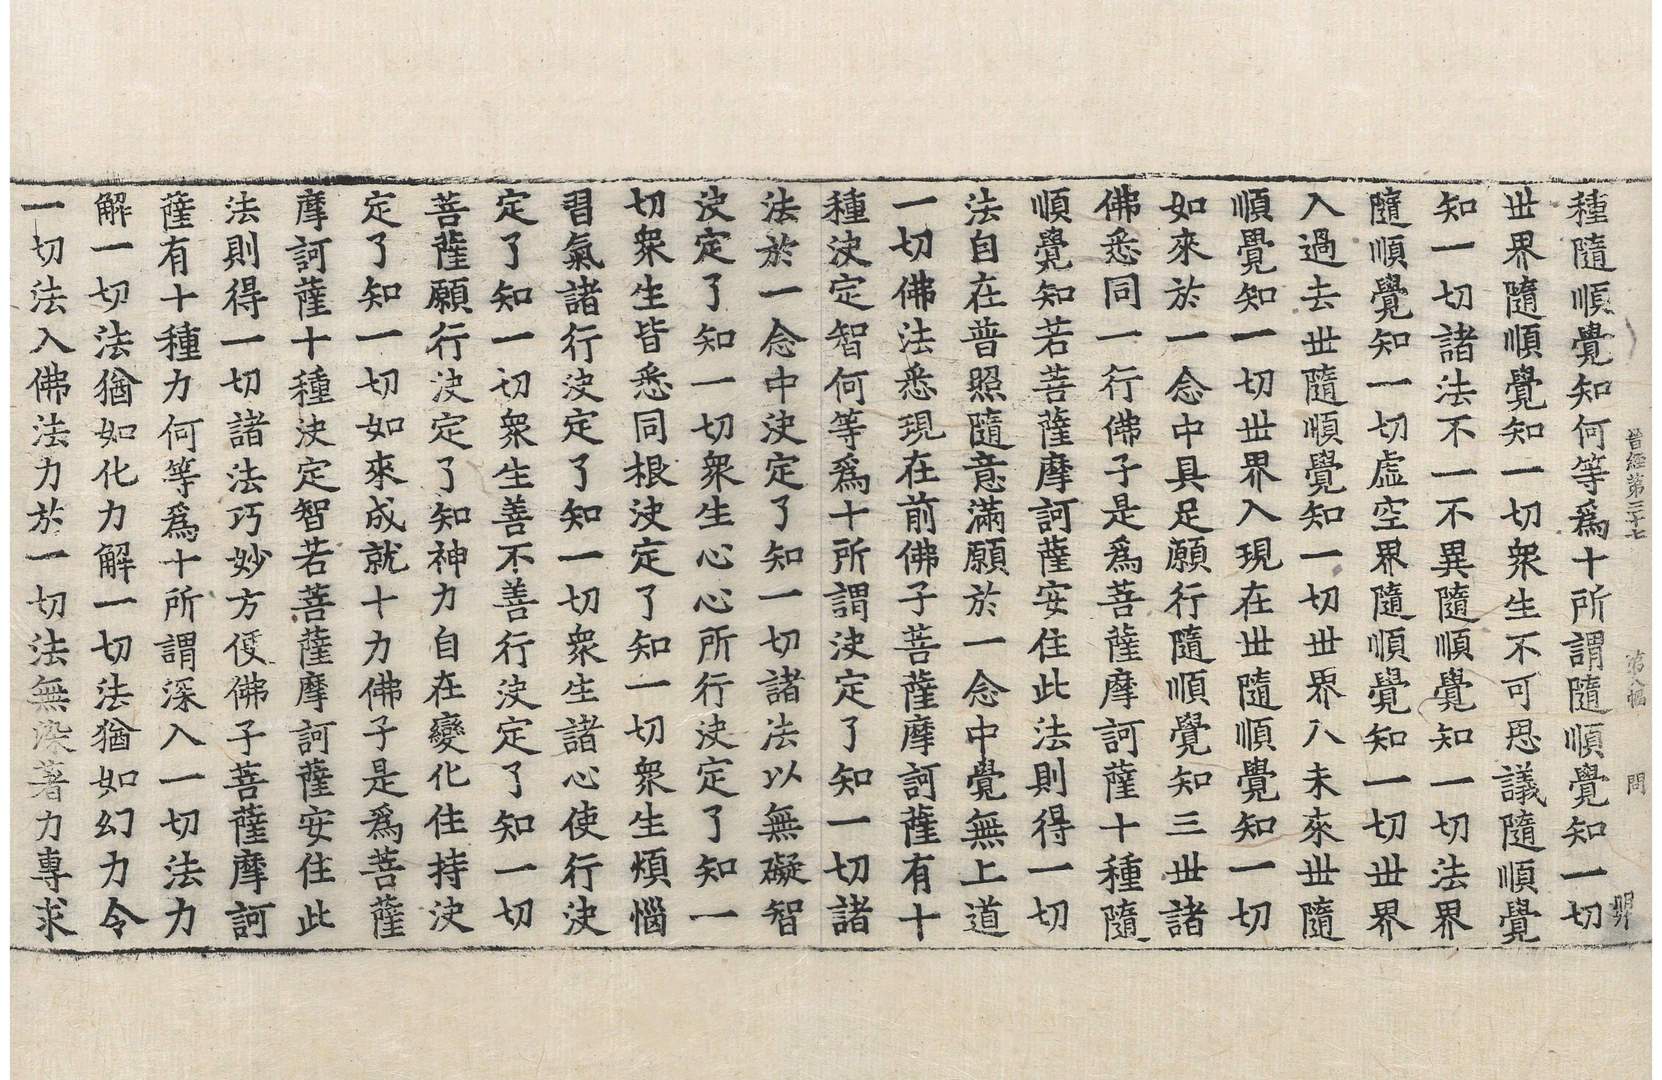 晉經第三十七　第八幅　問　明
種隨順覺知何等爲十所謂隨順覺知一切
世界隨順覺知一切衆生不可思議隨順覺
知一切諸法不一不異隨順覺知一切法界
隨順覺知一切虛空界隨順覺知一切世界
入過去世隨順覺知一切世界入未來世隨
順覺知一切世界入現在世隨順覺知一切
如來於一念中具足願行隨順覺知三世諸
佛悉同一行佛子是爲菩薩摩訶薩十種隨
順覺知若菩薩摩訶薩安住此法則得一切
法自在普照隨意滿願於一念中覺無上道
一切佛法悉現在前佛子菩薩摩訶薩有十
種決定智何等爲十所謂決定了知一切諸
法於一念中決定了知一切諸法以無礙智
決定了知一切衆生心心所行決定了知一
切衆生皆悉同根決定了知一切衆生煩惱
習氣諸行決定了知一切衆生諸心使行決
定了知一切衆生善不善行決定了知一切
菩薩願行決定了知神力自在變化住持決
定了知一切如來成就十力佛子是爲菩薩
摩訶薩十種決定智若菩薩摩訶薩安住此
法則得一切諸法巧妙方便佛子菩薩摩訶
薩有十種力何等爲十所謂深入一切法力
解一切法猶如化力解一切法猶如幻力令
一切法入佛法力於一切法無染著力專求